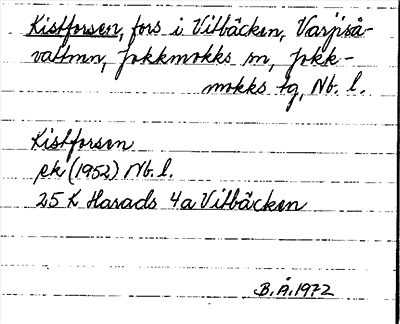 Kistforsen, fors i Vitbäcken, Varjiså-
vattnen, Jokkmokks sn, Jokk-
mokks tg, Nb. l.
Kistforsen
ek (1952) Nb. l.
25 K Harads 4a Vitbäcken
B. Å. 1972